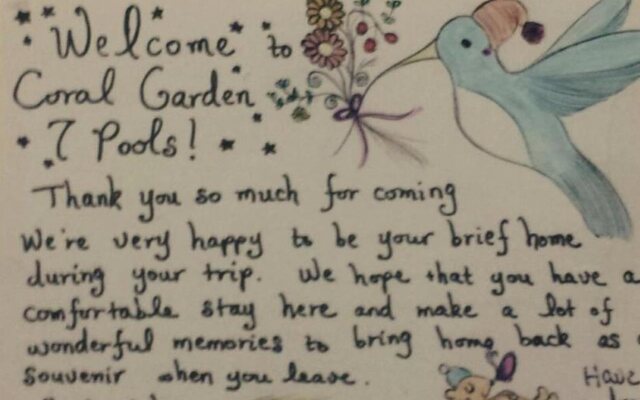 Welcome to
Coral Garden
7 Pools!
Thank you so much for coming
We're very happy to be your brief home
during your trip. We hope that you have a
comfortable stay here and make a lot of
wonderful memories to bring home back as a
souvenir when you leave.
Have